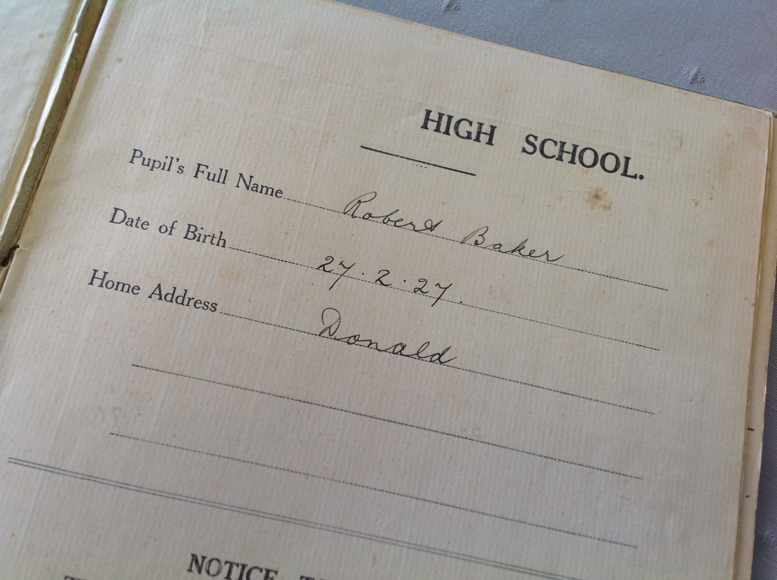 HIGH SCHOOL.
Pupil's Full Name Robert Baker
Date of Birth 27.2.27.
Home Address Donald
NOTICE